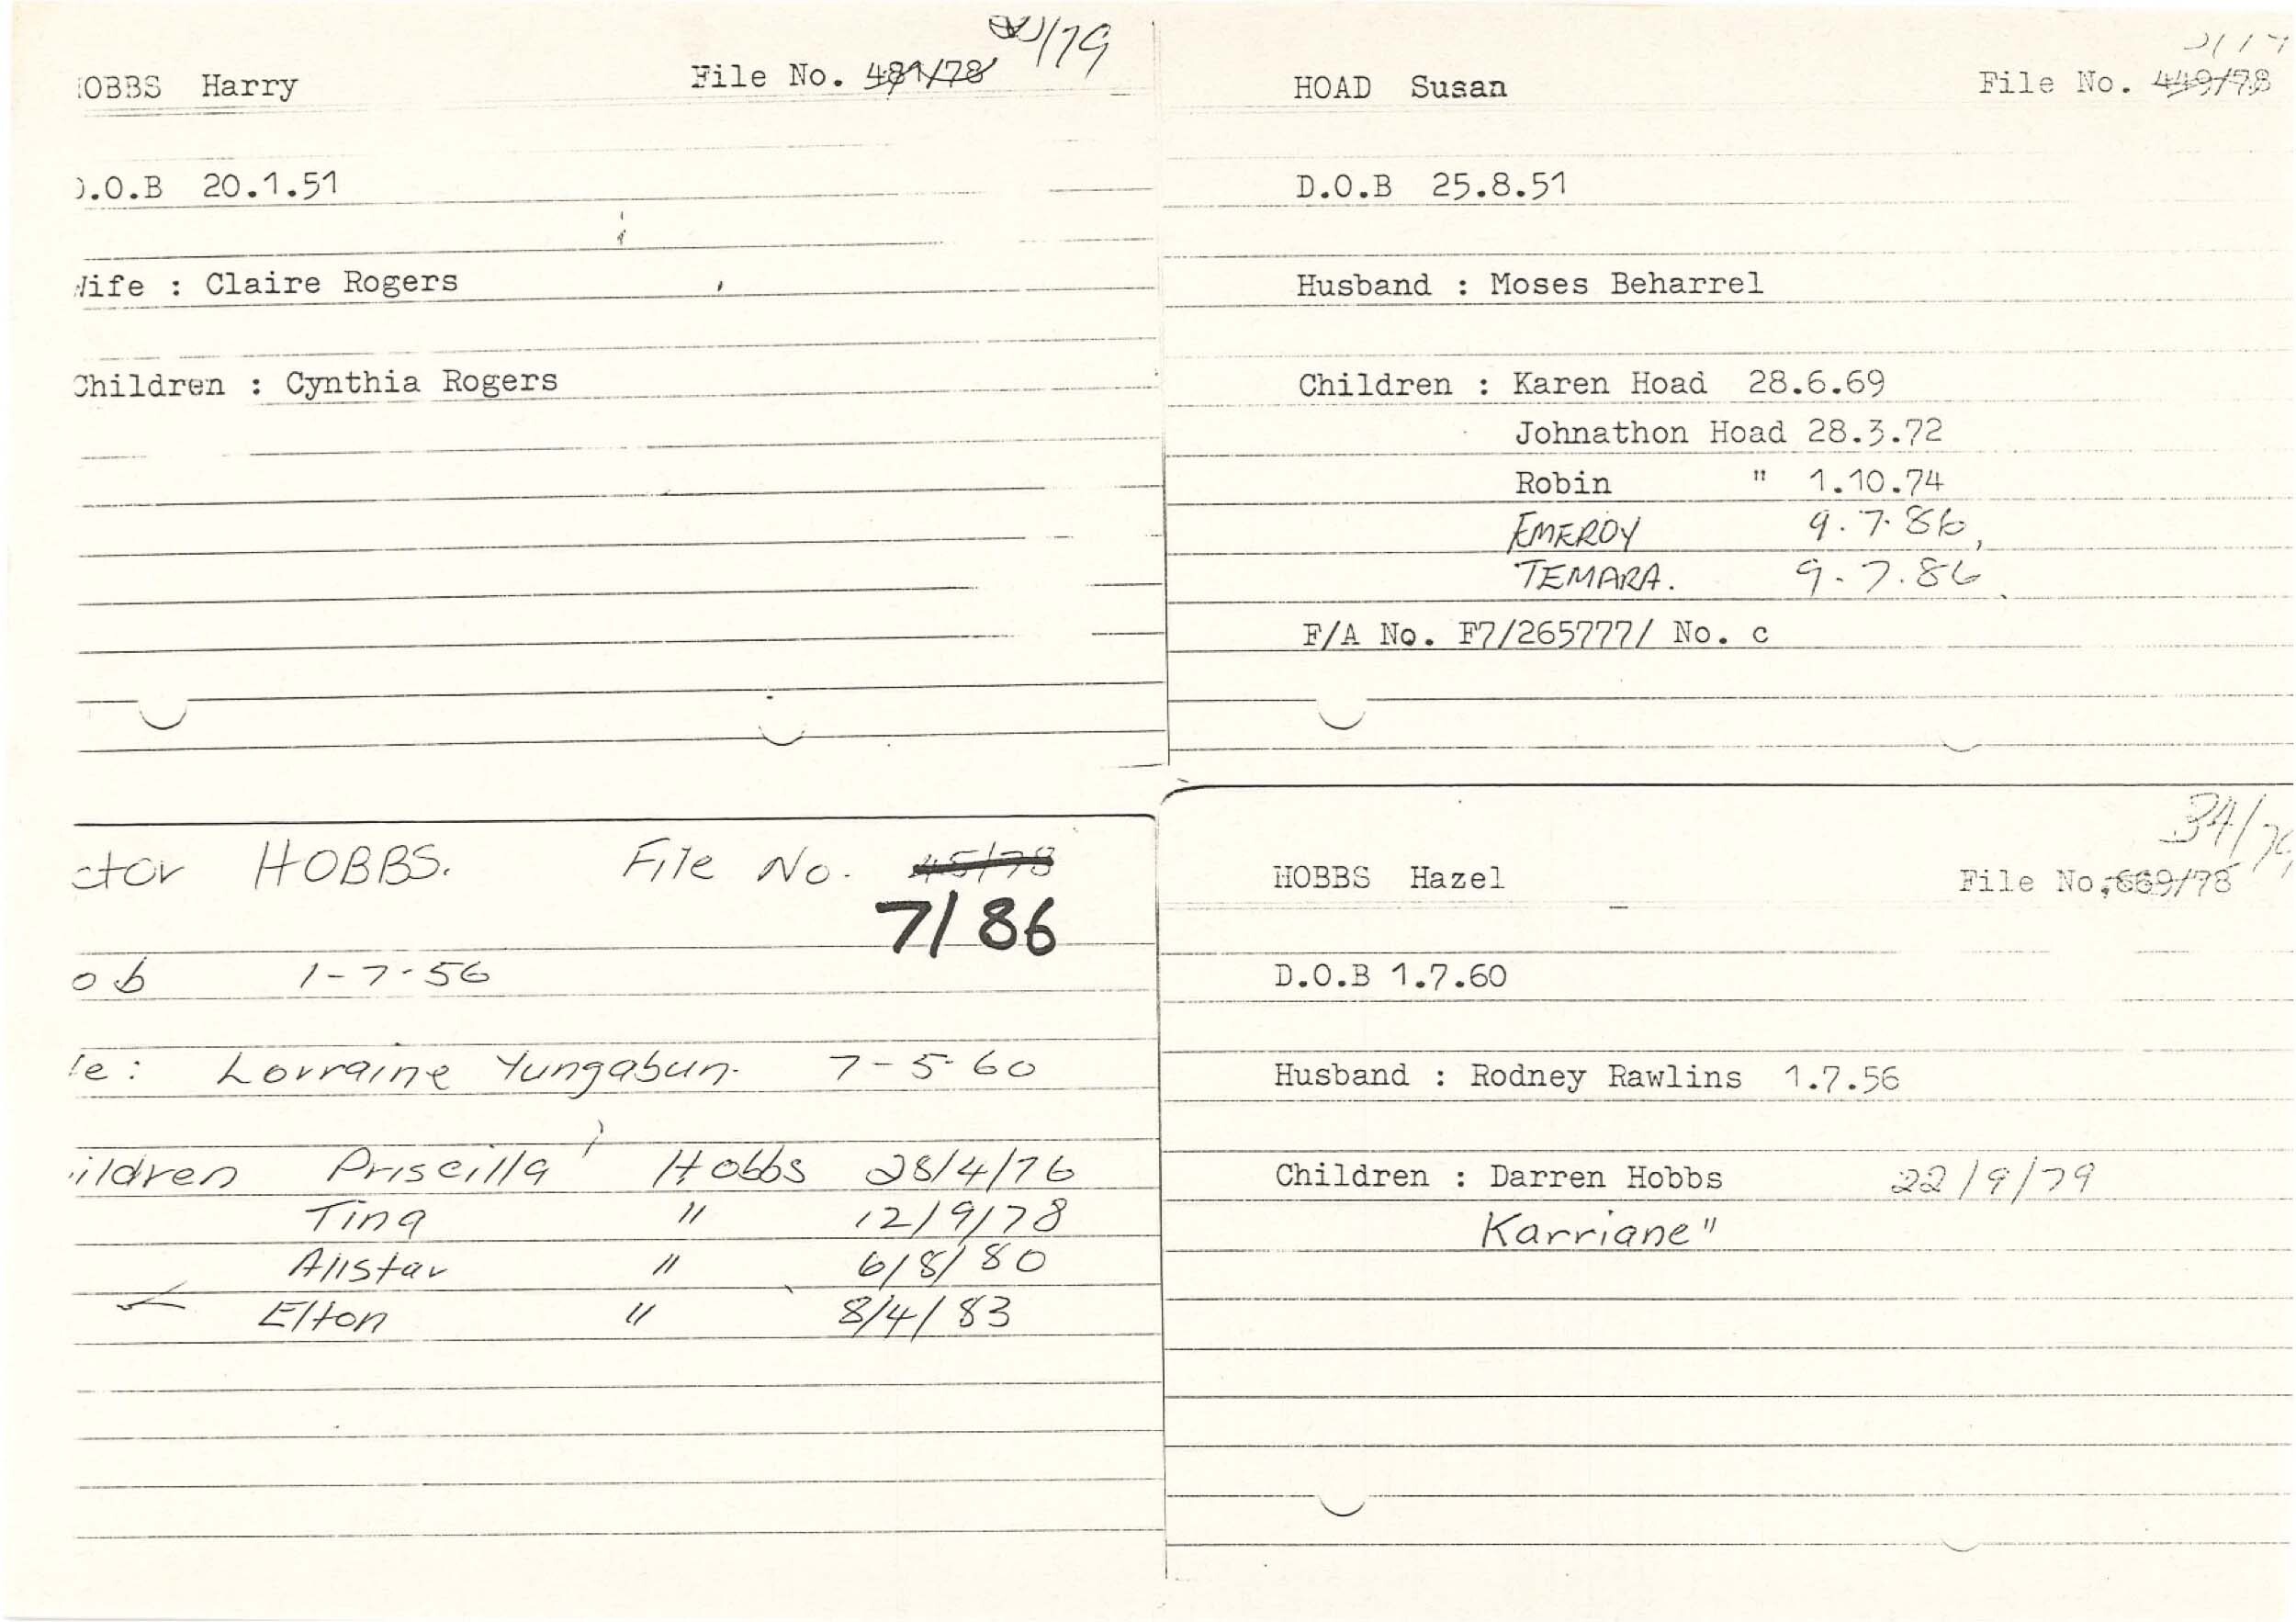 OBBS Harry File No. 481/78 /79
.O.B 20.1.51
ife : Claire Rogers
Children : Cynthia Rogers
HOAD Susan File No. 449/78
D.O.B 25.8.51
Husband : Moses Beharrel
Children : Karen Hoad 28.6.69
Johnathon Hoad 28.3.72
Robin " 1.10.74
EMEROY 9.7.86,
TEMARA. 9.7.86
F/A No. F7/265777/ No. c
ctor HOBBS. File No. 45/78
7/86
ob 1-7-56
e: Lorraine Yungabun. 7-5-60
ildren Priscilla Hobbs 28/4/76
Tina " 12/9/78
Alistar " 6/8/80
Elton " 8/4/83
34/
HOBBS Hazel File No. 669/78
D.O.B 1.7.60
Husband : Rodney Rawlins 1.7.56
Children : Darren Hobbs 22/9/79
Karriane "